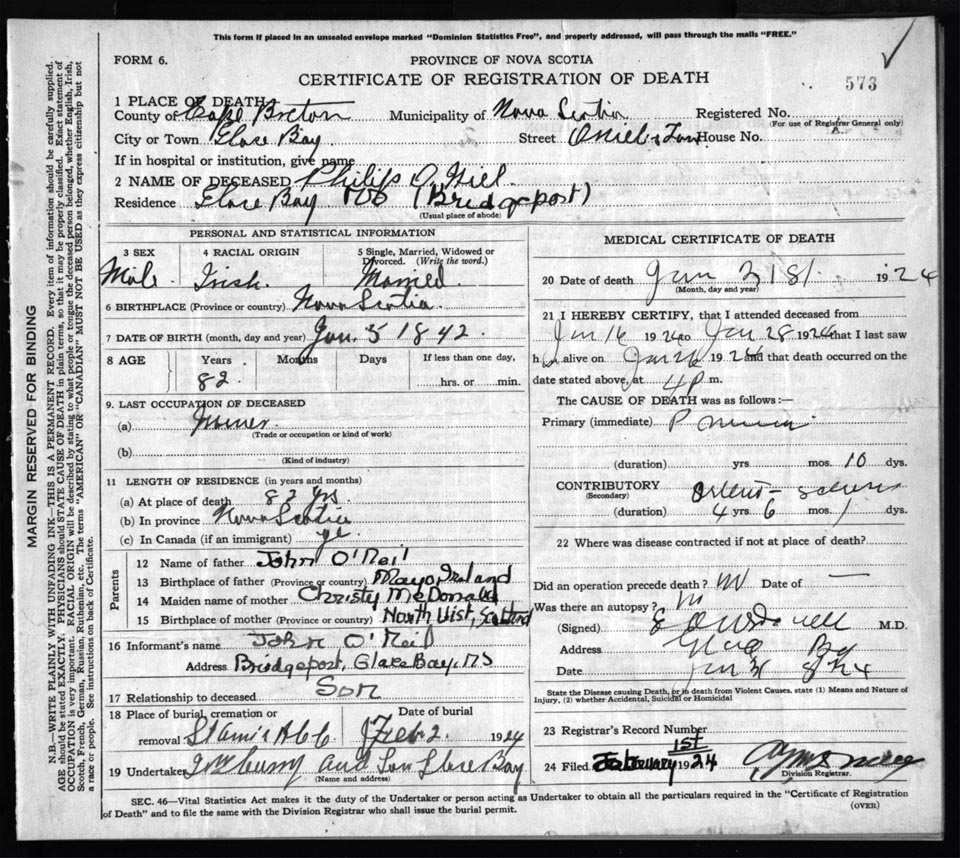 This form if placed in an unsealed envelope marked "Dominion Statistics Free", and properly addressed, will pass through the mails "FREE."
FORM 6.
PROVINCE OF NOVA SCOTIA
CERTIFICATE OF REGISTRATION OF DEATH
573
1 PLACE OF DEATH
County of Cape Breton Municipality of Nova Scotia Registered No.
(For use of Registrar General only)
City or Town Glace Bay Street House No.
If in hospital or institution, give name
2 NAME OF DECEASED Philip O'Neil
Residence Glace Bay (Bridgeport)
(Usual place of abode)
PERSONAL AND STATISTICAL INFORMATION
3 SEX Male
4 RACIAL ORIGIN Irish
5 Single, Married, Widowed or Divorced. (Write the word.) Married
6 BIRTHPLACE (Province or country) Nova Scotia
7 DATE OF BIRTH (month, day and year) Jan. 5 1842
8 AGE Years Months Days If less than one day,
82 hrs. or min.
9. LAST OCCUPATION OF DECEASED
(a)
(Trade or occupation or kind of work)
(b)
(Kind of industry)
11 LENGTH OF RESIDENCE (in years and months)
(a) At place of death 82 yrs
(b) In province Nova Scotia
(c) In Canada (if an immigrant)
Parents
12 Name of father John O'Neil
13 Birthplace of father (Province or country) Mayo, Ireland
14 Maiden name of mother Christy McDonald
15 Birthplace of mother (Province or country) North Uist, Scotland
16 Informant's name John O'Neil
Address Bridgeport, Glace Bay, NS
17 Relationship to deceased Son
18 Place of burial, cremation or removal
Date of burial Feb 2 1924
19 Undertaker and Son Glace Bay
(Name and address)
MEDICAL CERTIFICATE OF DEATH
20 Date of death Jan 31st 1924
(Month, day and year)
21 I HEREBY CERTIFY, that I attended deceased from
Jan 16 1924 to Jan 28 1924 that I last saw
h alive on Jan 1924 and that death occurred on the
date stated above, at 4 P m.
The CAUSE OF DEATH was as follows:—
Primary (immediate)
(duration) yrs mos. 10 dys.
CONTRIBUTORY
(Secondary)
(duration) 4 yrs 6 mos. dys.
22 Where was disease contracted if not at place of death?
Did an operation precede death? Date of
Was there an autopsy?
(Signed) M.D.
Address Glace Bay
Date
State the Disease causing Death, or in death from Violent Causes, state (1) Means and Nature of
Injury, (2) whether Accidental, Suicidal or Homicidal
23 Registrar's Record Number
24 Filed February 1st 1924
Division Registrar.
SEC. 46—Vital Statistics Act makes it the duty of the Undertaker or person acting as Undertaker to obtain all the particulars required in the "Certificate of Registration
of Death" and to file the same with the Division Registrar who shall issue the burial permit.
(OVER)
MARGIN RESERVED FOR BINDING
N.B.—WRITE PLAINLY WITH UNFADING INK—THIS IS A PERMANENT RECORD. Every item of information should be carefully supplied.
AGE should be stated EXACTLY. PHYSICIANS should STATE CAUSE OF DEATH in plain terms, so that it may be properly classified. Exact statement of
OCCUPATION is very important. RACIAL ORIGIN will be described by stating to what people or tongue the deceased person belonged, whether English, Irish,
Scotch, French, German, Russian, Ruthenian, etc. The terms "AMERICAN" or "CANADIAN" MUST NOT BE USED as they express citizenship but not
a race or people. See instructions on back of Certificate.